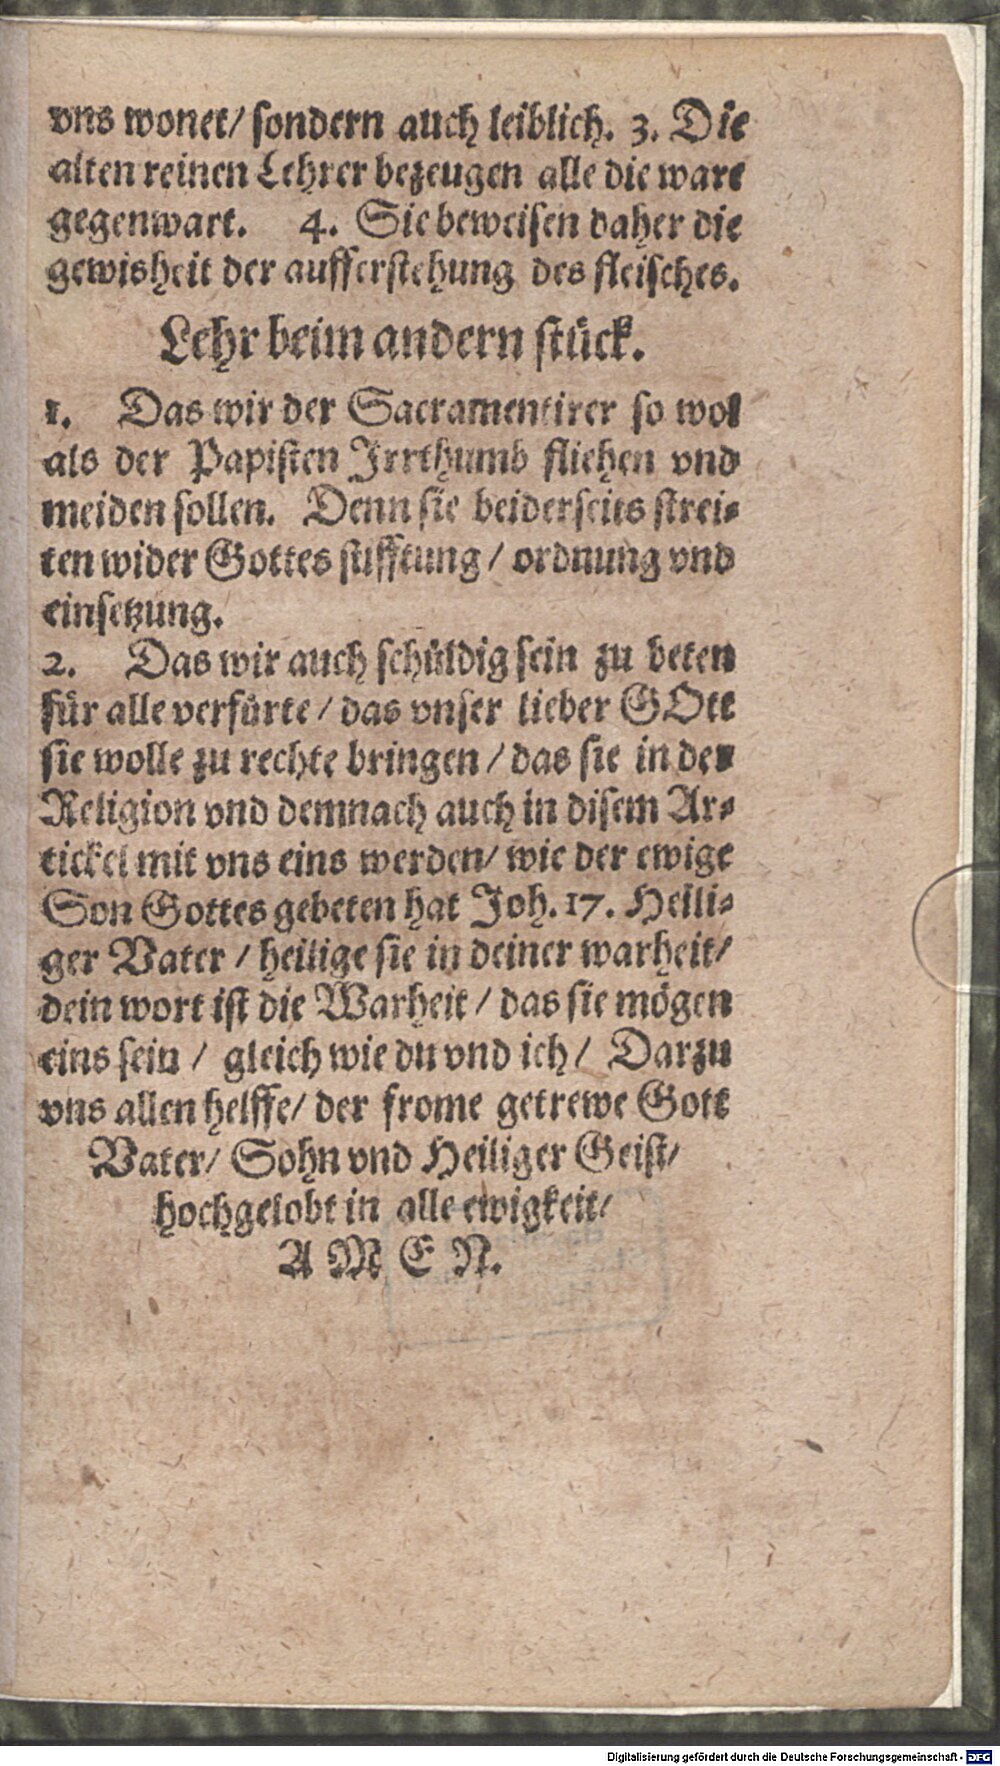 vns wonet/ sondern auch leiblich. 3. Die
alten reinen Lehrer bezeugen alle die ware
gegenwart. 4. Sie beweisen daher die
gewisheit der aufferstehung des fleisches.
Lehr beim andern stück.
1. Das wir der Sacramentirer so wol
als der Papisten Irrthumb fliehen vnd
meiden sollen. Denn sie beiderseits strei-
ten wider Gottes stifftung / ordnung vnd
einsetzung.
2. Das wir auch schüldig sein zu beten
für alle verfürte / das vnser lieber GOtt
sie wolle zu rechte bringen / das sie in der
Religion vnd demnach auch in disem Ar-
tickel mit vns eins werden/ wie der ewige
Son Gottes gebeten hat Joh. 17. Heili-
ger Vater / heilige sie in deiner warheit/
dein wort ist die Warheit / das sie mögen
eins sein / gleich wie du vnd ich / Darzu
vns allen helffe/ der frome getrewe Gott
Vater/ Sohn vnd Heiliger Geist/
hochgelobt in alle ewigkeit/
A M E N.
Digitalisierung gefördert durch die Deutsche Forschungsgemeinschaft - DFG